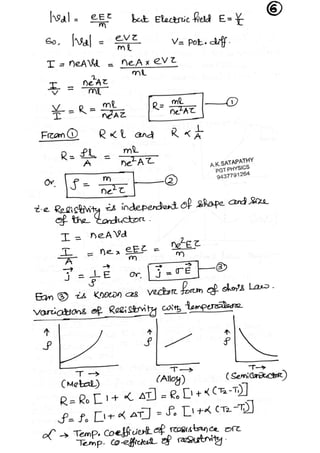 ⑥
|Vd| = eEτ/m but Electric field E = V/ℓ
So, |Vd| = eVτ/mℓ V = Pot. diff.
I = neAVd = neA x eVτ/mℓ
I/V = ne²Aτ/mℓ
V/I = R = mℓ/ne²Aτ R = mℓ/ne²Aτ — ①
From ① R ∝ ℓ and R ∝ 1/A
R = ρℓ/A = mℓ/ne²Aτ
A.K.SATAPATHY
PGT PHYSICS
9437791264
or. ρ = m/ne²τ — ②
i.e Resistivity is independent of shape and size
of the conductor.
I = neAVd
I/A = ne x eEτ/m = ne²Eτ/m
j = 1/ρ E or, j = σE — ③
Eqn ③ is known as vector form of ohm's Law.
Variations of Resistivity with temperature
↑ ρ ↑ ρ ↑ ρ
T → T → T →
(Metal) (Alloy) (Semiconductor)
R = R₀ [1 + α ΔT] = R₀ [1 + α (T₂-T₁)]
ρ = ρ₀ [1 + α ΔT] = ρ₀ [1 + α (T₂-T₁)]
α → Temp. Co-efficient of resistance or
Temp. co-efficient of resistivity.